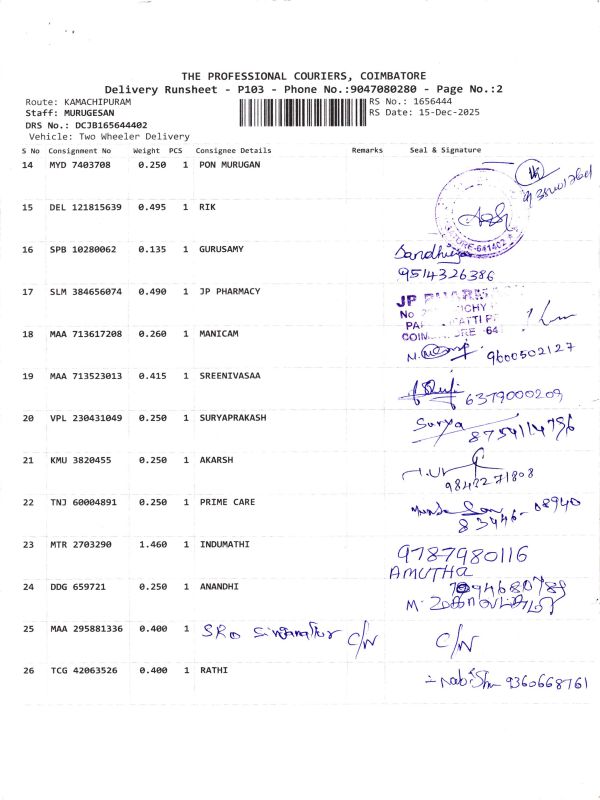 THE PROFESSIONAL COURIERS, COIMBATORE
Delivery Runsheet - P103 - Phone No.:9047080280 - Page No.:2
Route: KAMACHIPURAM RS No.: 1656444
Staff: MURUGESAN RS Date: 15-Dec-2025
DRS No.: DCJB165644402
Vehicle: Two Wheeler Delivery
S No Consignment No Weight PCS Consignee Details Remarks Seal & Signature
14 MYD 7403708 0.250 1 PON MURUGAN
15 DEL 121815639 0.495 1 RIK
641402
16 SPB 10280062 0.135 1 GURUSAMY Sandhiya
9514326386
17 SLM 384656074 0.490 1 JP PHARMACY JP
No
18 MAA 713617208 0.260 1 MANICAM 9600502127
19 MAA 713523013 0.415 1 SREENIVASAA 6379000209
20 VPL 230431049 0.250 1 SURYAPRAKASH Surya
8754114796
21 KMU 3820455 0.250 1 AKARSH
9842271808
22 TNJ 60004891 0.250 1 PRIME CARE
83446-08940
23 MTR 2703290 1.460 1 INDUMATHI 9787980116
AMUTHA
24 DDG 659721 0.250 1 ANANDHI
25 MAA 295881336 0.400 1 SRO Singanallur C/N C/N
26 TCG 42063526 0.400 1 RATHI 9360668761